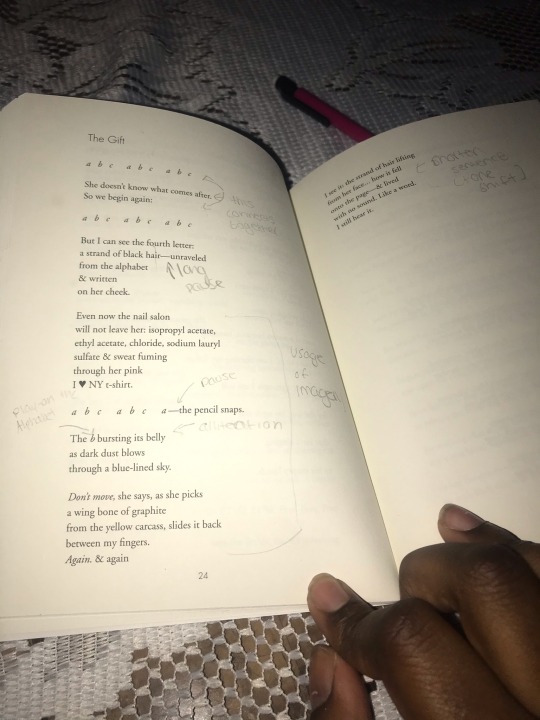 The Gift
a b c a b c a b c
She doesn't know what comes after.
So we begin again:
a b c a b c a b c
But I can see the fourth letter:
a strand of black hair—unraveled
from the alphabet
& written
on her cheek.
Even now the nail salon
will not leave her: isopropyl acetate,
ethyl acetate, chloride, sodium lauryl
sulfate & sweat fuming
through her pink
I ♥ NY t-shirt.
a b c a b c a—the pencil snaps.
The b bursting its belly
as dark dust blows
through a blue-lined sky.
Don't move, she says, as she picks
a wing bone of graphite
from the yellow carcass, slides it back
between my fingers.
Again. & again
24
this
connects
together
long
pause
pause
alliteration
usage
of
images
I see it: the strand of hair lifting
from her face... how it fell
onto the page—& lived
with no sound. Like a word.
I still hear it.
shorter
sentence